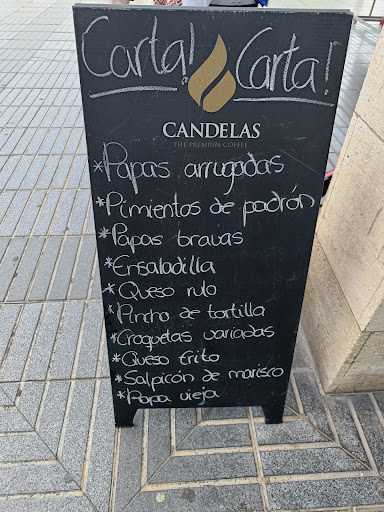 Carta! Carta!
CANDELAS
THE PREMIUM COFFEE
*Papas arrugadas
*Pimientos de padrón
*Papas bravas
*Ensaladilla
*Queso rulo
*Pincho de tortilla
*Croquetas variadas
*Queso frito
*Salpicón de marisco
*Ropa vieja